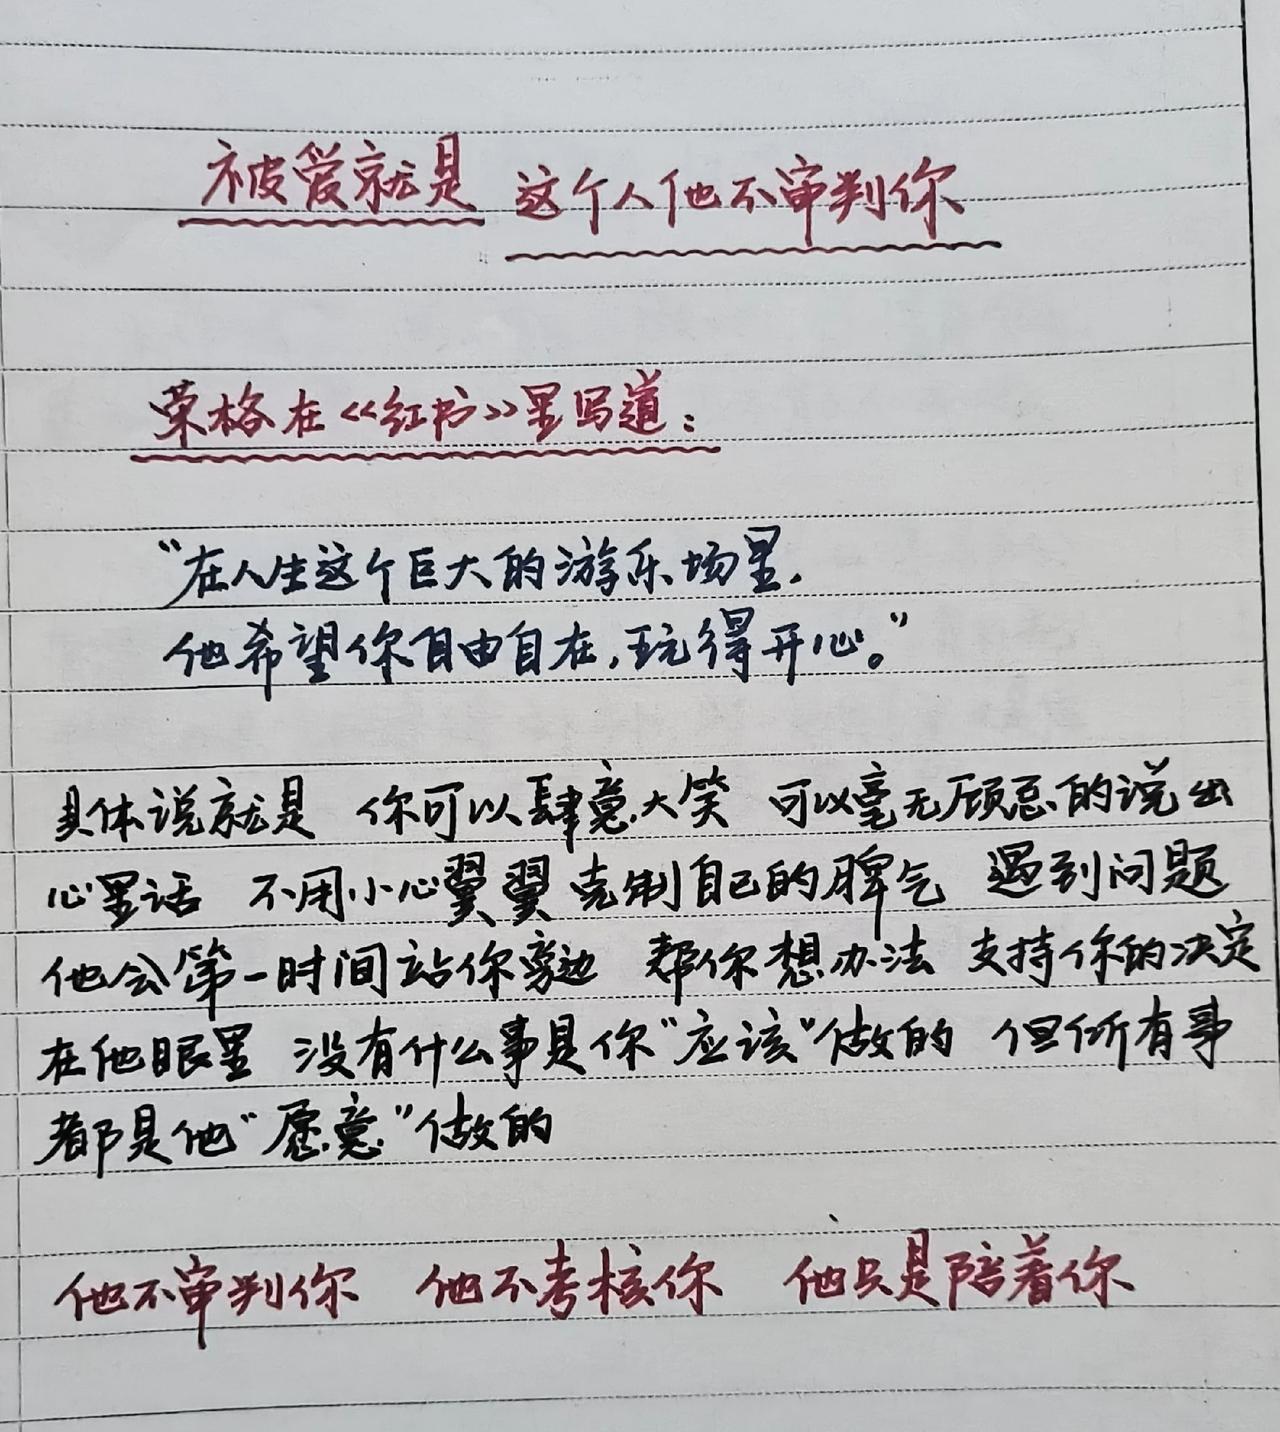 被爱就是 这个人他不审判你
荣格在《红书》里写道：
“在人生这个巨大的游乐场里，
他希望你自由自在，玩得开心。”
具体说就是 你可以肆意大笑 可以毫无顾忌的说出
心里话 不用小心翼翼克制自己的脾气 遇到问题
他会第一时间站你旁边 帮你想办法 支持你的决定
在他眼里 没有什么事是你“应该”做的 但所有事
都是他“愿意”做的
他不审判你 他不考核你 他只是陪着你